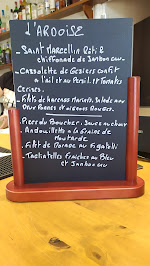 L'ARDOISE
- Saint Marcellin Rôti &
chiffonnade de Jambon cru.
- Cassolette de Gésiers confit
à l'ail et au Persil et Tomates
Cerises.
- Filets de harengs Marinés, Salade aux
Deux Pommes et oignons Rouges.
- Pièce du Boucher, Sauce au choix
- Andouillette à la Graine de
Moutarde
- Filet de Dorade au Figatelli
- Tagliatelles Fraîches au Bleu
et Jambon cru